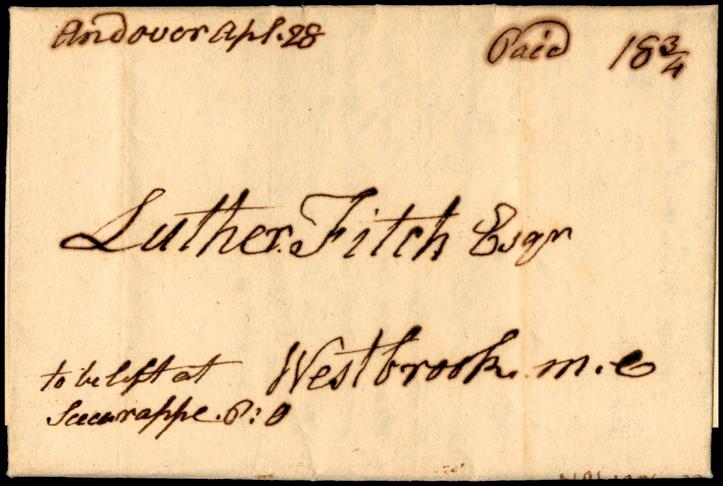 Andover Apl. 28
Paid 18 3/4
Luther Fitch Esqr
Westbrook. m.e
to be left at
Saccarappe. P: O